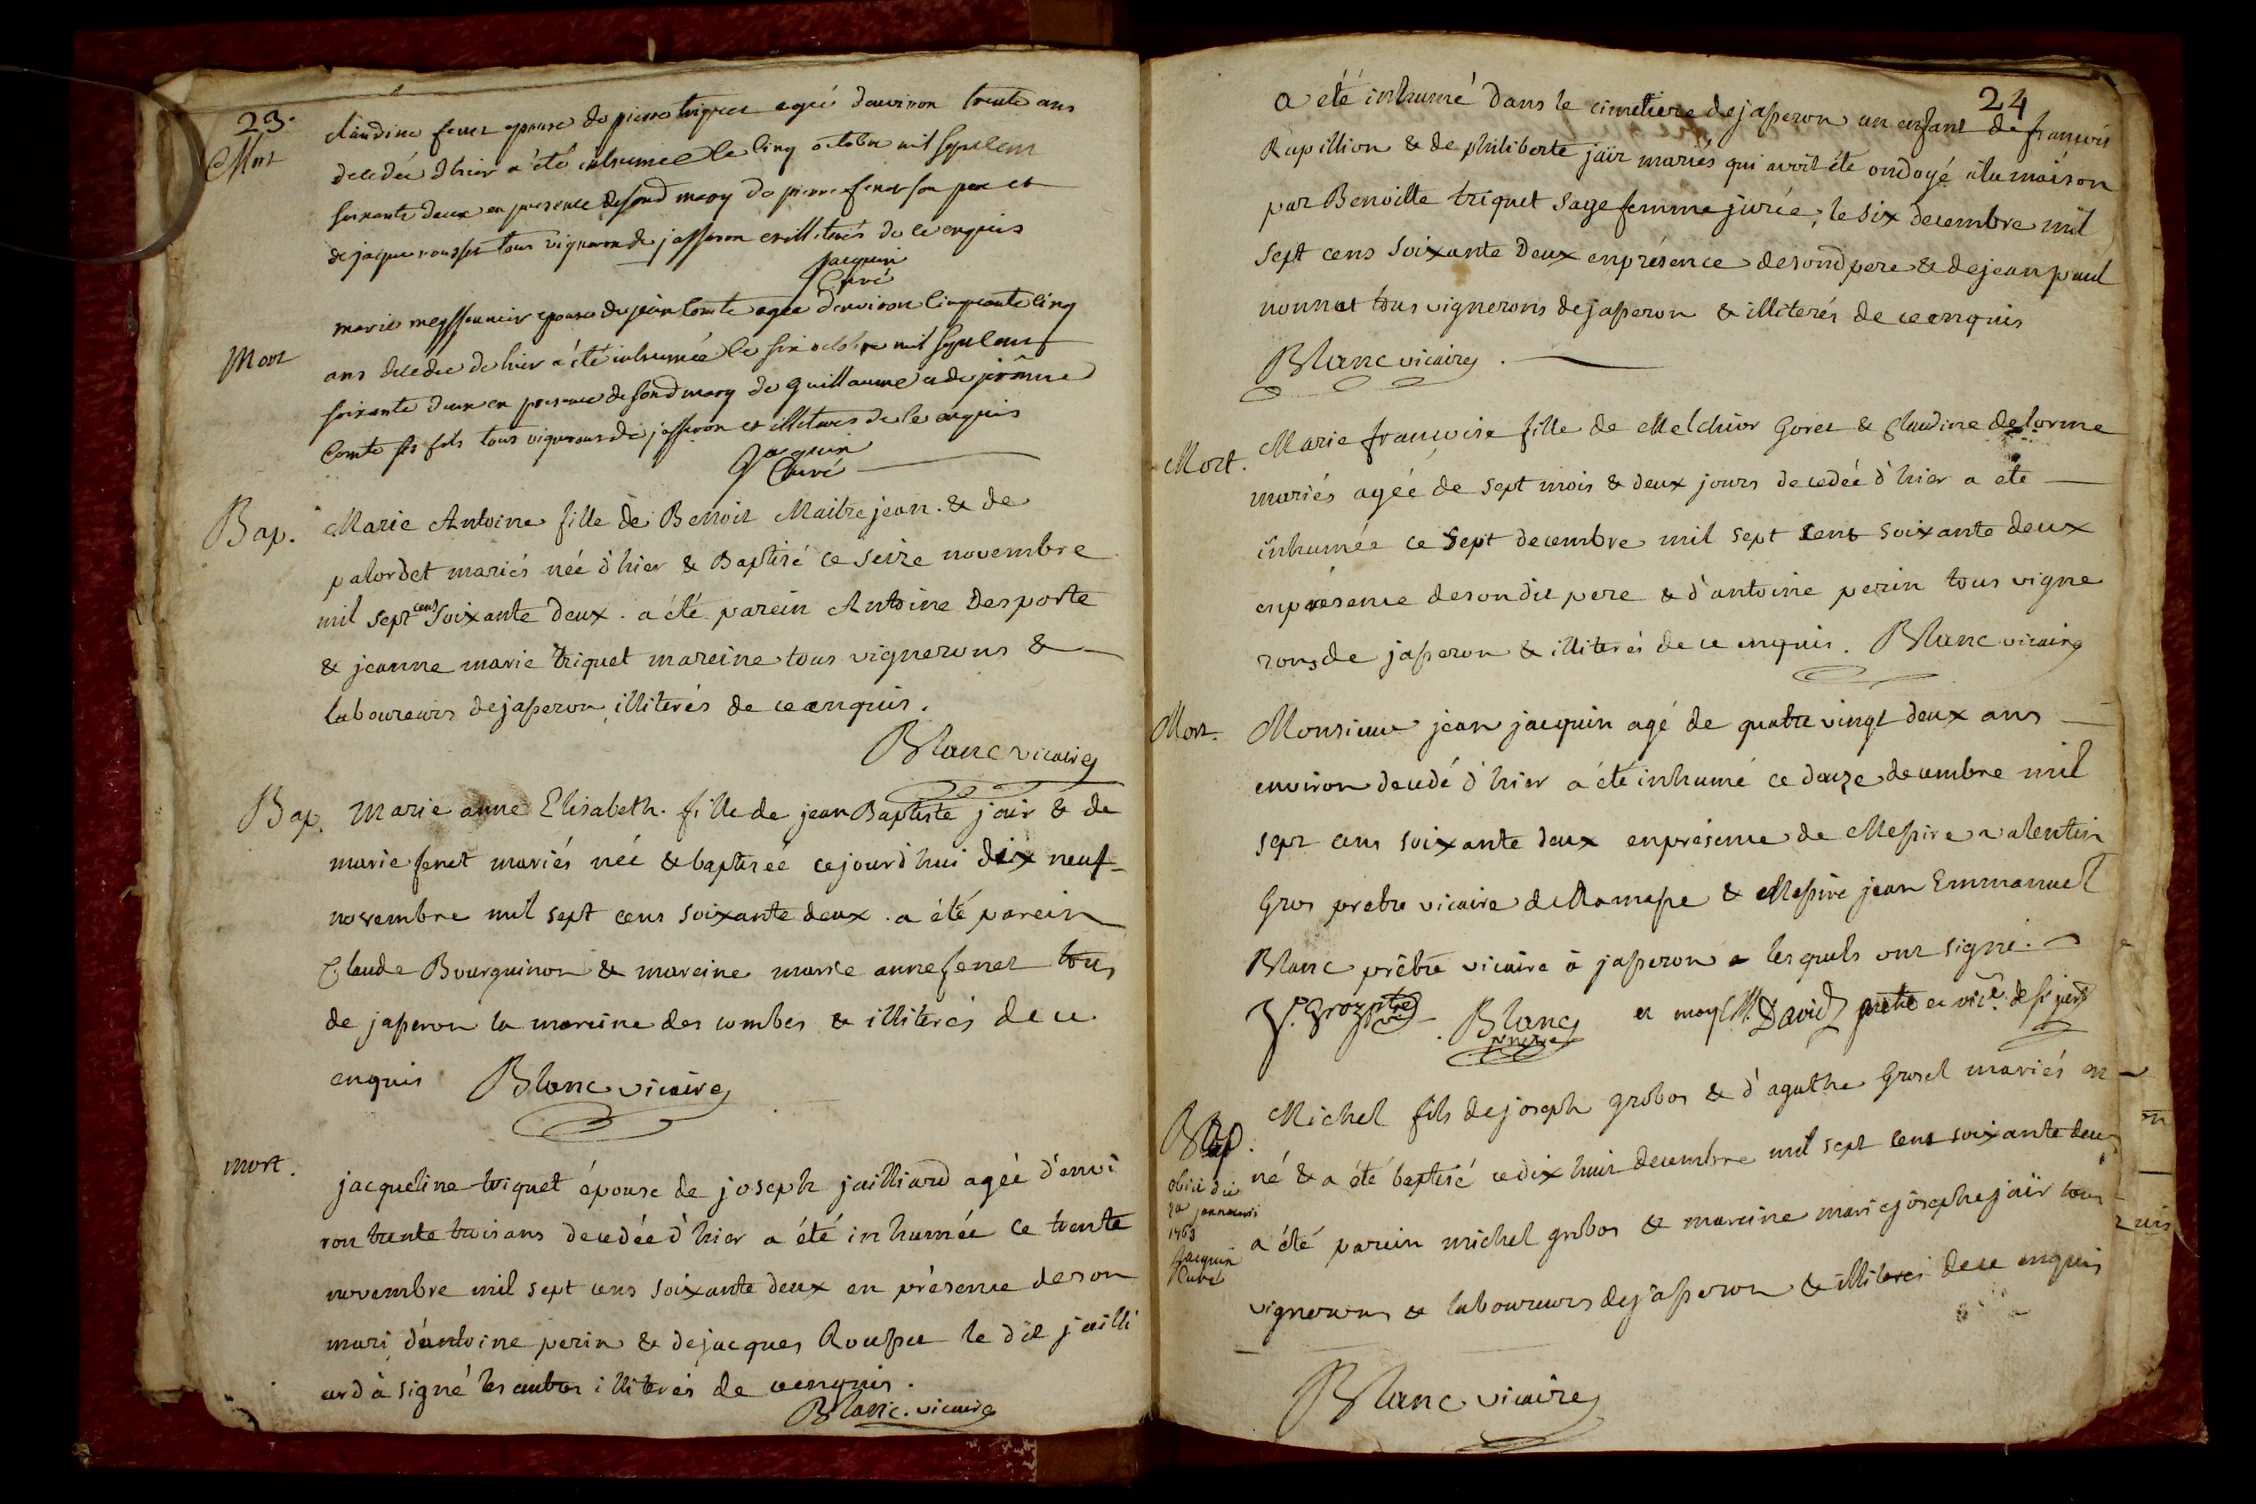 23.
Mort
claudine fenet epouse de pierre triquet agée d'environ trente ans
decedée d'hier a été inhumée le cinq octobre mil sept cens
soixante deux en presence de sond mary de pierre fenet son pere et
de jaque rousset tous vignerons de jasseron et illiterés de ce enquis
Jacquin
Curé
Mort
marie meyssonnier epouse de jean comte agée d'environ cinquante cinq
ans decedée de hier a été inhumée le six octobre mil sept cens
soixante deux en presence de sond mary de Guillaume et de
Comte ses fils tous vignerons de jasseron et illiterés de ce enquis
Jacquin
Curé
Bap.
Marie Antoine fille de Benoit Maitrejean. & de
palordet mariés née d'hier & Baptisé ce seize novembre
mil sept cens soixante deux. a été parein Antoine Desporte
& jeanne marie triquet mareine tous vignerons &
laboureurs de jasseron illiterés de ce enquis.
Blanc vicaire
Bap.
Marie anne Elisabeth. fille de jean Baptiste jair & de
marie fenet mariés née & baptisée cejourd'hui dix neuf
novembre mil sept cens soixante deux. a été parein
Claude Bourguinon & mareine marie anne fenet tous
de jasseron la mareine des combes & illiterés de ce
enquis Blanc vicaire
mort.
jacqueline triquet épouse de joseph jailliard agée d'envi
ron trente trois ans decedée d'hier a été inhumée ce trente
novembre mil sept cens soixante deux en présence de son
mari, d'antoine perin & de jacques Rousset le dit jailli
ard à signé les autres illiterés de ce enquis.
Blanc. vicaire
24
a eté inhumé dans le cimetiere de jasseron un enfant de françois
Rapillion & de philiberte jaïr mariés qui avoit été ondoyé à la maison
par Benoitte triquet sage femme jurée, le six decembre mil
sept cens soixante deux en présence de sond pere & de jean paul
nonnet tous vignerons de jasseron & illiterés de ce enquis
Blanc vicaire.
Mort.
Marie françoise fille de Melchior Goret & Claudine delorme
mariés agée de sept mois & deux jours decedée d'hier a eté
inhumée ce sept decembre mil sept cens soixante deux
en présence de son dit pere & d'antoine perin tous vigne
rons de jasseron & illiterés de ce enquis. Blanc vicaire
Mort.
Monsieur jean jacquin agé de quatre vingt deux ans
environ decedé d'hier a été inhumé ce douze decembre mil
sept cens soixante deux en présence de Messire valentin
Gros pretre vicaire de Ramasse & Messire jean Emmanuel
Blanc prêtre vicaire à jasseron lesquels ont signé.
V. Groz ptre
Blanc
prêtre
et moy M. David pretre et vic.e de
Bap.
obiit die
2a januarii
1763
Jacquin
Curé
Michel fils de joseph grobos & d'agathe Grosel mariés est
né & a été baptisé ce dix huit decembre mil sept cens soixante deux
a été parein michel grobos & mareine marie josephe jaïr tous
vignerons & laboureurs de jasseron & illiterés de ce enquis
Blanc vicaire